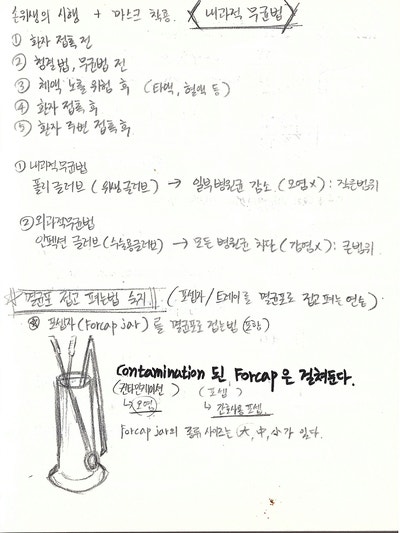 손위생의 시행 + 마스크 착용. 《내과적 무균법》
① 환자 접촉 전
② 청결법, 무균법 전
③ 체액 노출 위험 후 (타액, 혈액 등)
④ 환자 접촉 후
⑤ 환자 주변 접촉 후
① 내과적무균법
폴리글러브 (위생글러브) → 일부 병원균 감소 (오염x) : 작은범위
② 외과적무균법
글러브 (수술용글러브) → 모든 병원균 차단 (감염x) : 큰범위
멸균포 접고 펴는법 숙지 (포셉자/트레이를 멸균포로 접고 펴는 연습).
포셉자 (Forcap jar) 를 멸균포로 접는법 (포함)
Contamination 된 Forcap은 걸쳐둔다.
(컨타미네이션) (포셉)
↳ 오염 ↳ 간호사용 포셉.
Forcap jar의 종류 사이즈는 大, 中, 小가 있다.